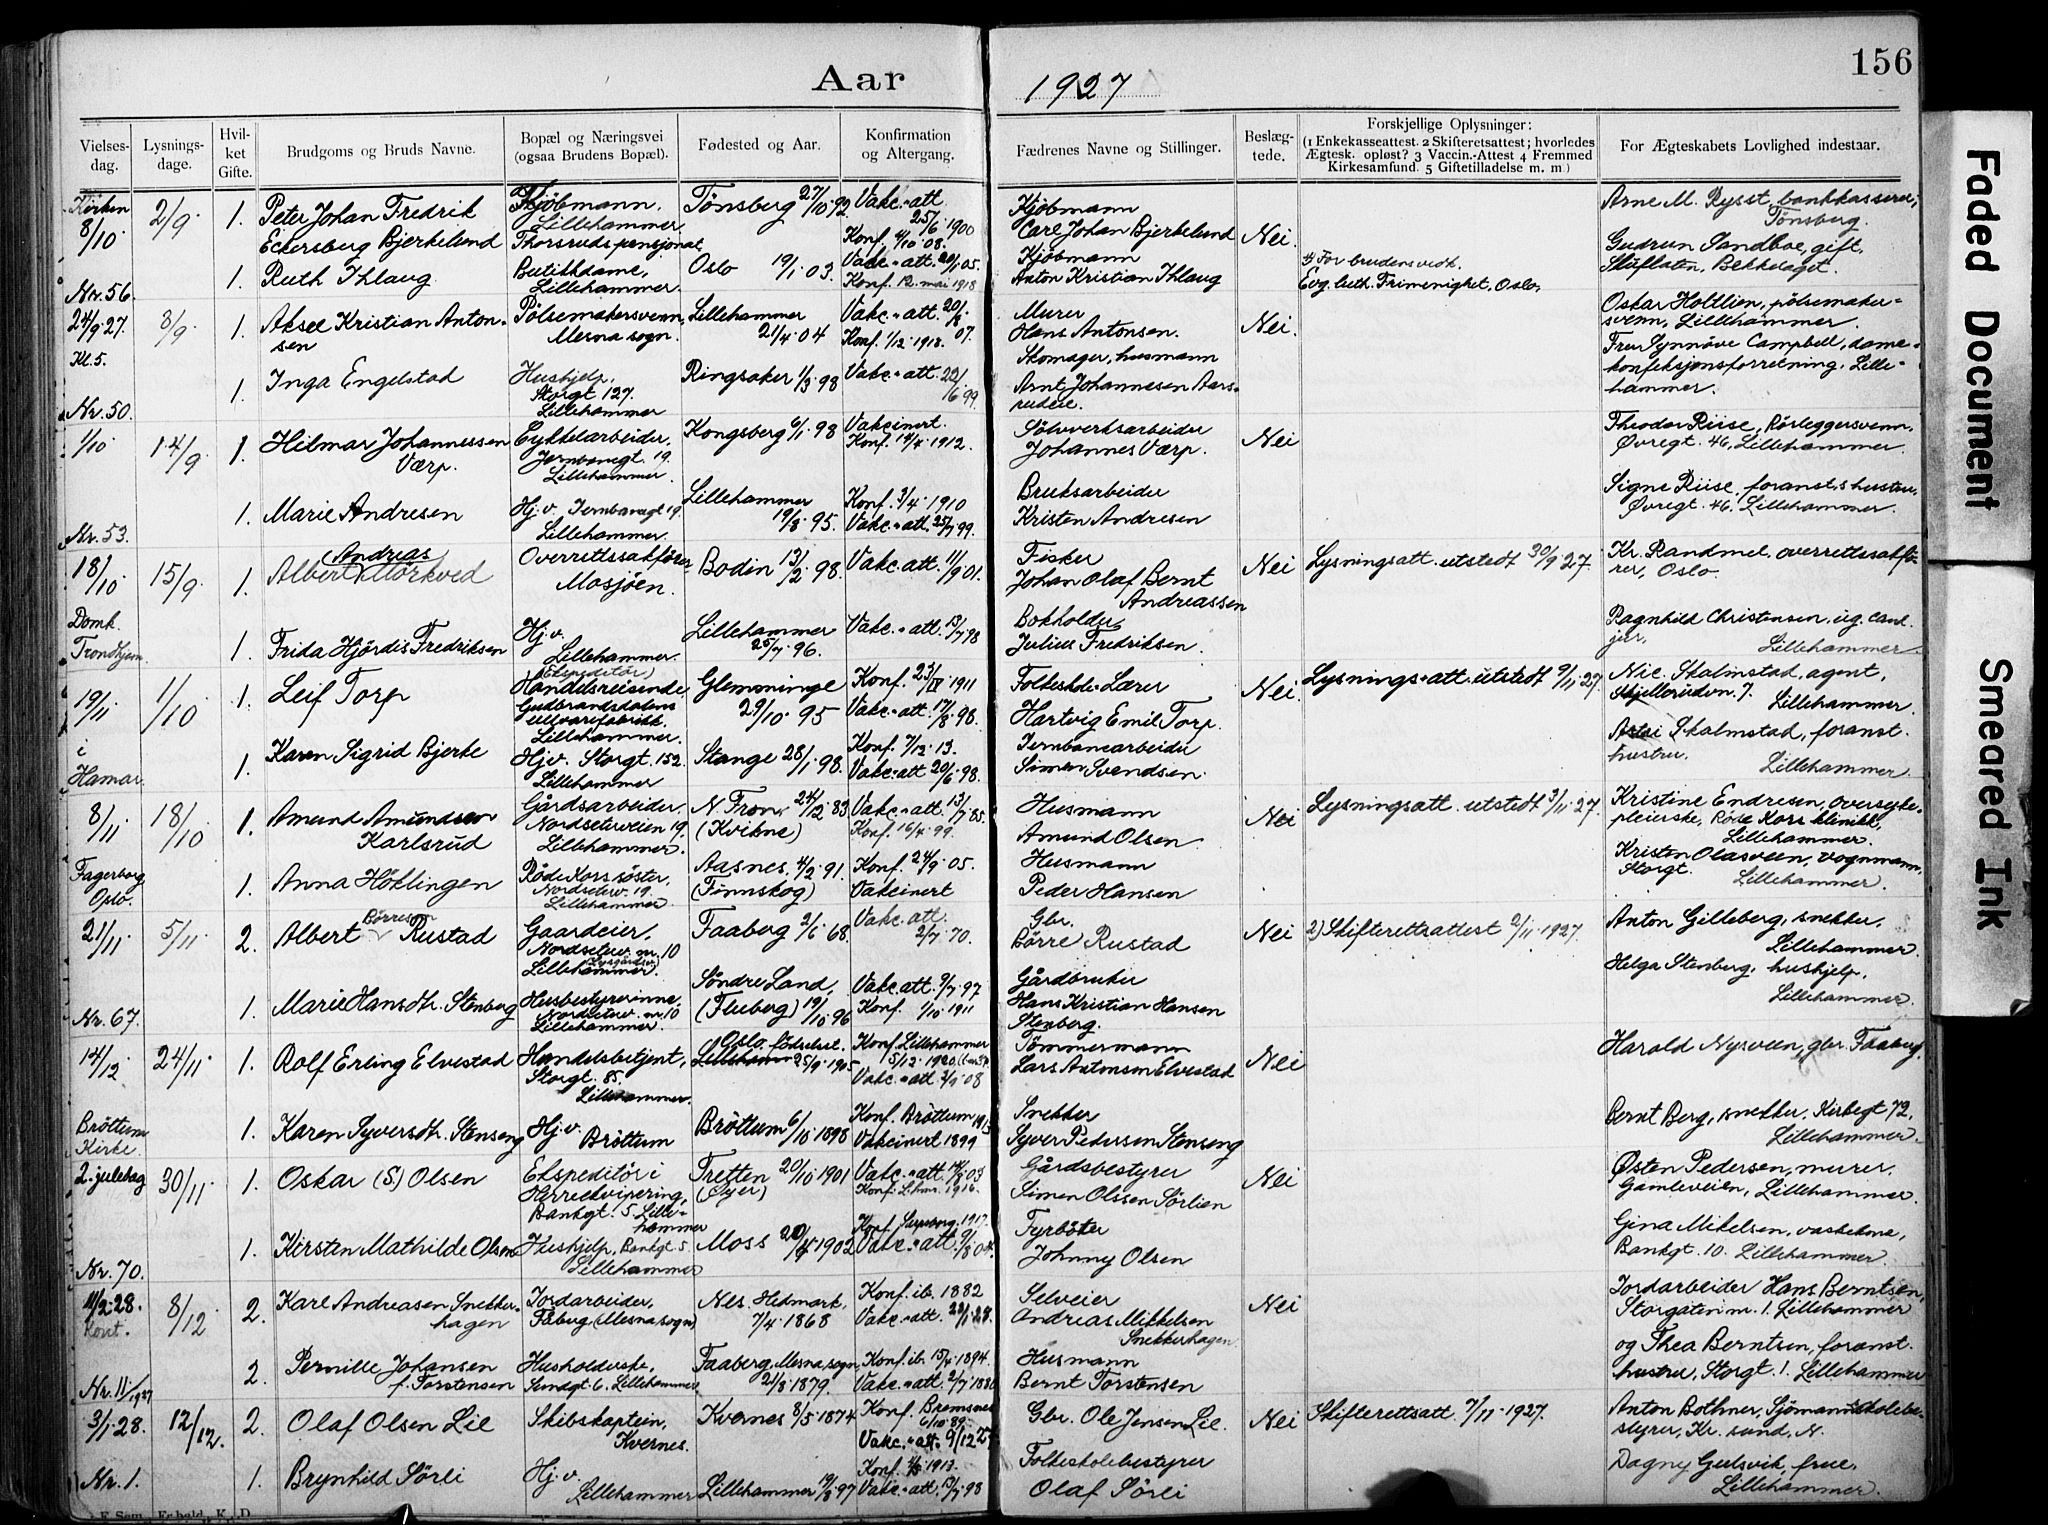 Aar 1927
156
Vielses-dag.
Lysnings-dage.
Hvil-ket Gifte.
Brudgoms og Bruds Navne.
Bopæl og Næringsvei (ogsaa Brudens Bopæl).
Fødested og Aar.
Konfirmation og Altergang.
Fædrenes Navne og Stillinger.
Beslæg-tede.
Forskjellige Oplysninger:
(1 Enkekasseattest. 2 Skifteretsattest; hvorledes
Ægtesk. opløst? 3 Vaccin.-Attest 4 Fremmed
Kirkesamfund. 5 Giftetilladelse m. m.)
For Ægteskabets Lovlighed indestaar.
Kirken 8/10
2/9
1.
Peter Johan Fredrik
Eckersberg Bjerkelund
Kjøbmann,
Lillehammer
Tønsberg 27/10 92
Vakc. att 25/6 1900
Konf. 4/10 08.
Kjøbmann
Carl Johan Bjerkelund
Nei.
Arne M. Rysst, bankkasserer,
Tønsberg.
Nr. 56.
1.
Ruth Ihlaug
Thorsruds pensjonat
Butikkdame,
Lillehammer.
Oslo 19/1 03.
Vakc. att. 20/1 05.
Konf. 12. mai 1918
Kjøbmann
Anton Kristian Ihlaug
4) For brudens vedk.
Evg. luth. Frimenighet, Oslo,
Gudrun Sandboe, gift,
Bekkelaget.
24/9 27.
Kl. 5.
3/9
1.
Aksel Kristian Anton-
sen
Pølsemakersvenn,
Mesna sogn.
Lillehammer
21/4 04
Vakc. att. 20/8 07.
Konf. 1/12 1918.
Murer
Hans Antonsen.
Nei.
Oskar Holtlien, pølsemaker-
svenn, Lillehammer.
Nr. 50.
1.
Inga Engelstad
Hushjelp,
Storgt 127.
Lillehammer
Ringsaker 1/3 98
Vakc. att. 22/6 99.
Skomager, husmann
Arnt Johannesen Aars-
rudeie.
Fru Synnöve Campbell, dame-
konfeksjonsforretning, Lille-
hammer.
1/10
14/9
1.
Hilmar Johannessen
Værp.
Cykkelarbeider,
Jernbanegt. 19.
Lillehammer.
Kongsberg 6/1 98
Vakcinert.
Konf. 14/4 1912.
Sölvverksarbeider
Johannes Værp.
Nei
Theodor Riise, Rörleggersvenn,
Øvregt. 46, Lillehammer.
Nr. 53.
1.
Marie Andresen
Hj. v. Jernbanegt 19.
Lillehammer.
Lillehammer
19/8 95.
Konf. 3/4 1910
Vakc. att. 25/7 99.
Bruksarbeider
Kristen Andresen
Signe Riise, foranst.s hustru,
Øvregt. 46, Lillehammer.
18/10
15/9
1.
Andreas
Albert Mörkved
Overrettssakförer
Mosjöen.
Bodin 13/2 98.
Vakc. att. 11/9 01.
Fisker
Johan Olaf Bernt
Andreassen
Nei
Lysningsatt. utstedt 30/9 27.
Kr. Randmel, overrettssakfö-
rer, Oslo.
Domk.
Trondhjem.
1.
Frida Hjördis Fredriksen
Hj. v.
Lillehammer.
Lillehammer
25/7 96.
Vakc. att. 13/7 98
Bokholder
Julius Fredriksen.
Ragnhild Christensen, ug. cand.
jur, Lillehammer.
19/11
1/10
1.
Leif Torp
(Ekspeditör)
Handelsreisende
Gudbrandsdalens
ullvarefabrikk.
Lillehammer.
Glemminge
29/10 95
Konf. 23/IV 1911
Vakc. att. 17/8 98.
Folkeskole Lærer
Hartvig Emil Torp.
Nei.
Lysnings-att. utstedt 9/11 27.
Nic. Skalmstad, agent,
Skjellerudvn. 7. Lillehammer.
i
Hamar.
1.
Karen Sigrid Bjerke
Hj. v. Storgt. 152.
Lillehammer
Stange 28/1 98.
Konf. 7/12 13.
Vakc. att 20/6 98.
Jernbanearbeider
Simen Svendsen.
Skalmstad, foranst.
hustru. Lillehammer.
8/11
18/10
1.
Amund Amundsen
Karlsrud
Gårdsarbeider
Nordseterveien 19.
Lillehammer.
N. Fron, 24/2 83
(Kvikne)
Vakc. att. 13/7 85.
Konf. 16/4 99.
Husmann
Amund Olsen
Nei
Lysningsatt. utstedt 3/11 27.
Kristine Endresen, oversyke-
pleierske, Röde Kors klinikk,
Lillehammer.
Fagerborg
Oslo.
1.
Anna Höklingen
Röde Kors söster,
Nordseterv. 19.
Lillehammer.
Aasnes, 4/2 91.
(Finnskog)
Konf. 24/9 05.
Vakcinert
Husmann
Peder Hansen
Kristen Olasveen, vognmann,
Storgt. Lillehammer.
21/11
5/11
2.
Börresen
Albert Rustad
Gaardeier,
Nordseterv. nr. 10
Lillehammer.
Faaberg 2/6 68.
Vakc. att.
2/7 70.
Gbr.
Börre Rustad
Nei
2) Skifterettsattest 2/11 1927.
Anton Gilleberg, snekker.
Lillehammer.
Nr. 67.
1.
Marie Hansdtr. Stenberg
Husbestyrerinne,
Nordseterv. nr. 10
Lillehammer.
Söndre Land,
(Fluberg) 19/10 96
Vakc. att. 9/7 97
Konf. 1/10 1911
Gårdbruker
Hans Kristian Hansen
Stenberg.
Helga Stenberg, hushjelp,
Lillehammer.
14/12
24/11
1.
Rolf Erling Elvestad
Handelsbetjent,
Storgt. 85.
Lillehammer.
Oslo, födselsst.
Lillehammer 25/9 1905
Konf. Lillehammer
5/12 1920
Vakc. att. 2/9 08
Tömmermann
Lars Antonsen Elvestad
Nei
Harald Nysveen, gbr. Faaberg.
Bröttum
Kirke.
1.
Karen Syversdtr. Stenseng
Hj. v.
Bröttum
Bröttum 6/10 1898
Konf. Bröttum 1913
Vakcinert 1899
Snekker
Syver Pedersen Stenseng
Bernt Berg, snekker, Kirkegt 72,
Lillehammer.
2. juledag
30/11
1.
Oskar (S.) Olsen
Ekspeditör i
Herreekvipering,
Bankgt. 5. Lille-
hammer
Tretten 20/10 1901
(Øyer)
Vakc. att. 14/8 03
Konf. L.hmr. 1916.
Gårdsbestyrer
Simen Olsen Sörlien
Nei
Østen Pedersen, murer,
Gamleveien, Lillehammer.
Nr. 70.
1.
Kirsten Mathilde Olsen
Hushjelp, Bankgt. 5.
Lillehammer
Moss 20/4 1902
Konf. Sarpsborg. 1917.
Vakc. att. 9/8 04.
Fyrböter
Johnny Olsen
Gina Mikelsen, vaskekone,
Bankgt. 10. Lillehammer.
11/2 28.
Kont.
8/12
2.
Karl Andreasen Snekker-
hagen
Jordarbeider,
Fåberg (Mesna sogn)
Nes. Hedmark,
7/4 1868
Konf. ib. 1882
Vakc. att. 23/1 28.
Selveier
Andreas Mikkelsen
Snekkerhagen
Nei
Jordarbeider Hans Berntsen,
Storgaten nr. 1. Lillehammer
Nr. 11/1927
2.
Pernille Johansen
f. Torstensen
Husholderske,
Sundgt. 6, Lillehammer
Faaberg, Mesna sogn
21/8 1879.
Konf. ib. 15/4 1894.
Vakc. att. 2/7 1880
Husmann
Bernt Torstensen
og Thea Berntsen, foranst.
hustru, Storgt. 1. Lillehammer
3/1 28.
12/12.
2.
Olaf Olsen Lie
Skibskaptein,
Kvernes.
Kvernes 8/5 1874
Konf. Bremsnes
6/10 89.
Vakc. att. 9/12 27
Gbr. Ole Jensen Lie.
Nei
Skifterettsatt. 7/11 1927.
Anton Bothner, Sjömannsskolebe-
styrer, Kr. sund, N.
Nr. 1.
1.
Brynhild Sörli
Hj. v.
Lillehammer
Lillehammer 19/8 97
Konf. 4/5 1913.
Vakc. att. 15/7 98
Folkeskolebestyrer
Olaf Sörli
Dagny Gulsvik, frue,
Lillehammer.
Faded Document
Smeared Ink